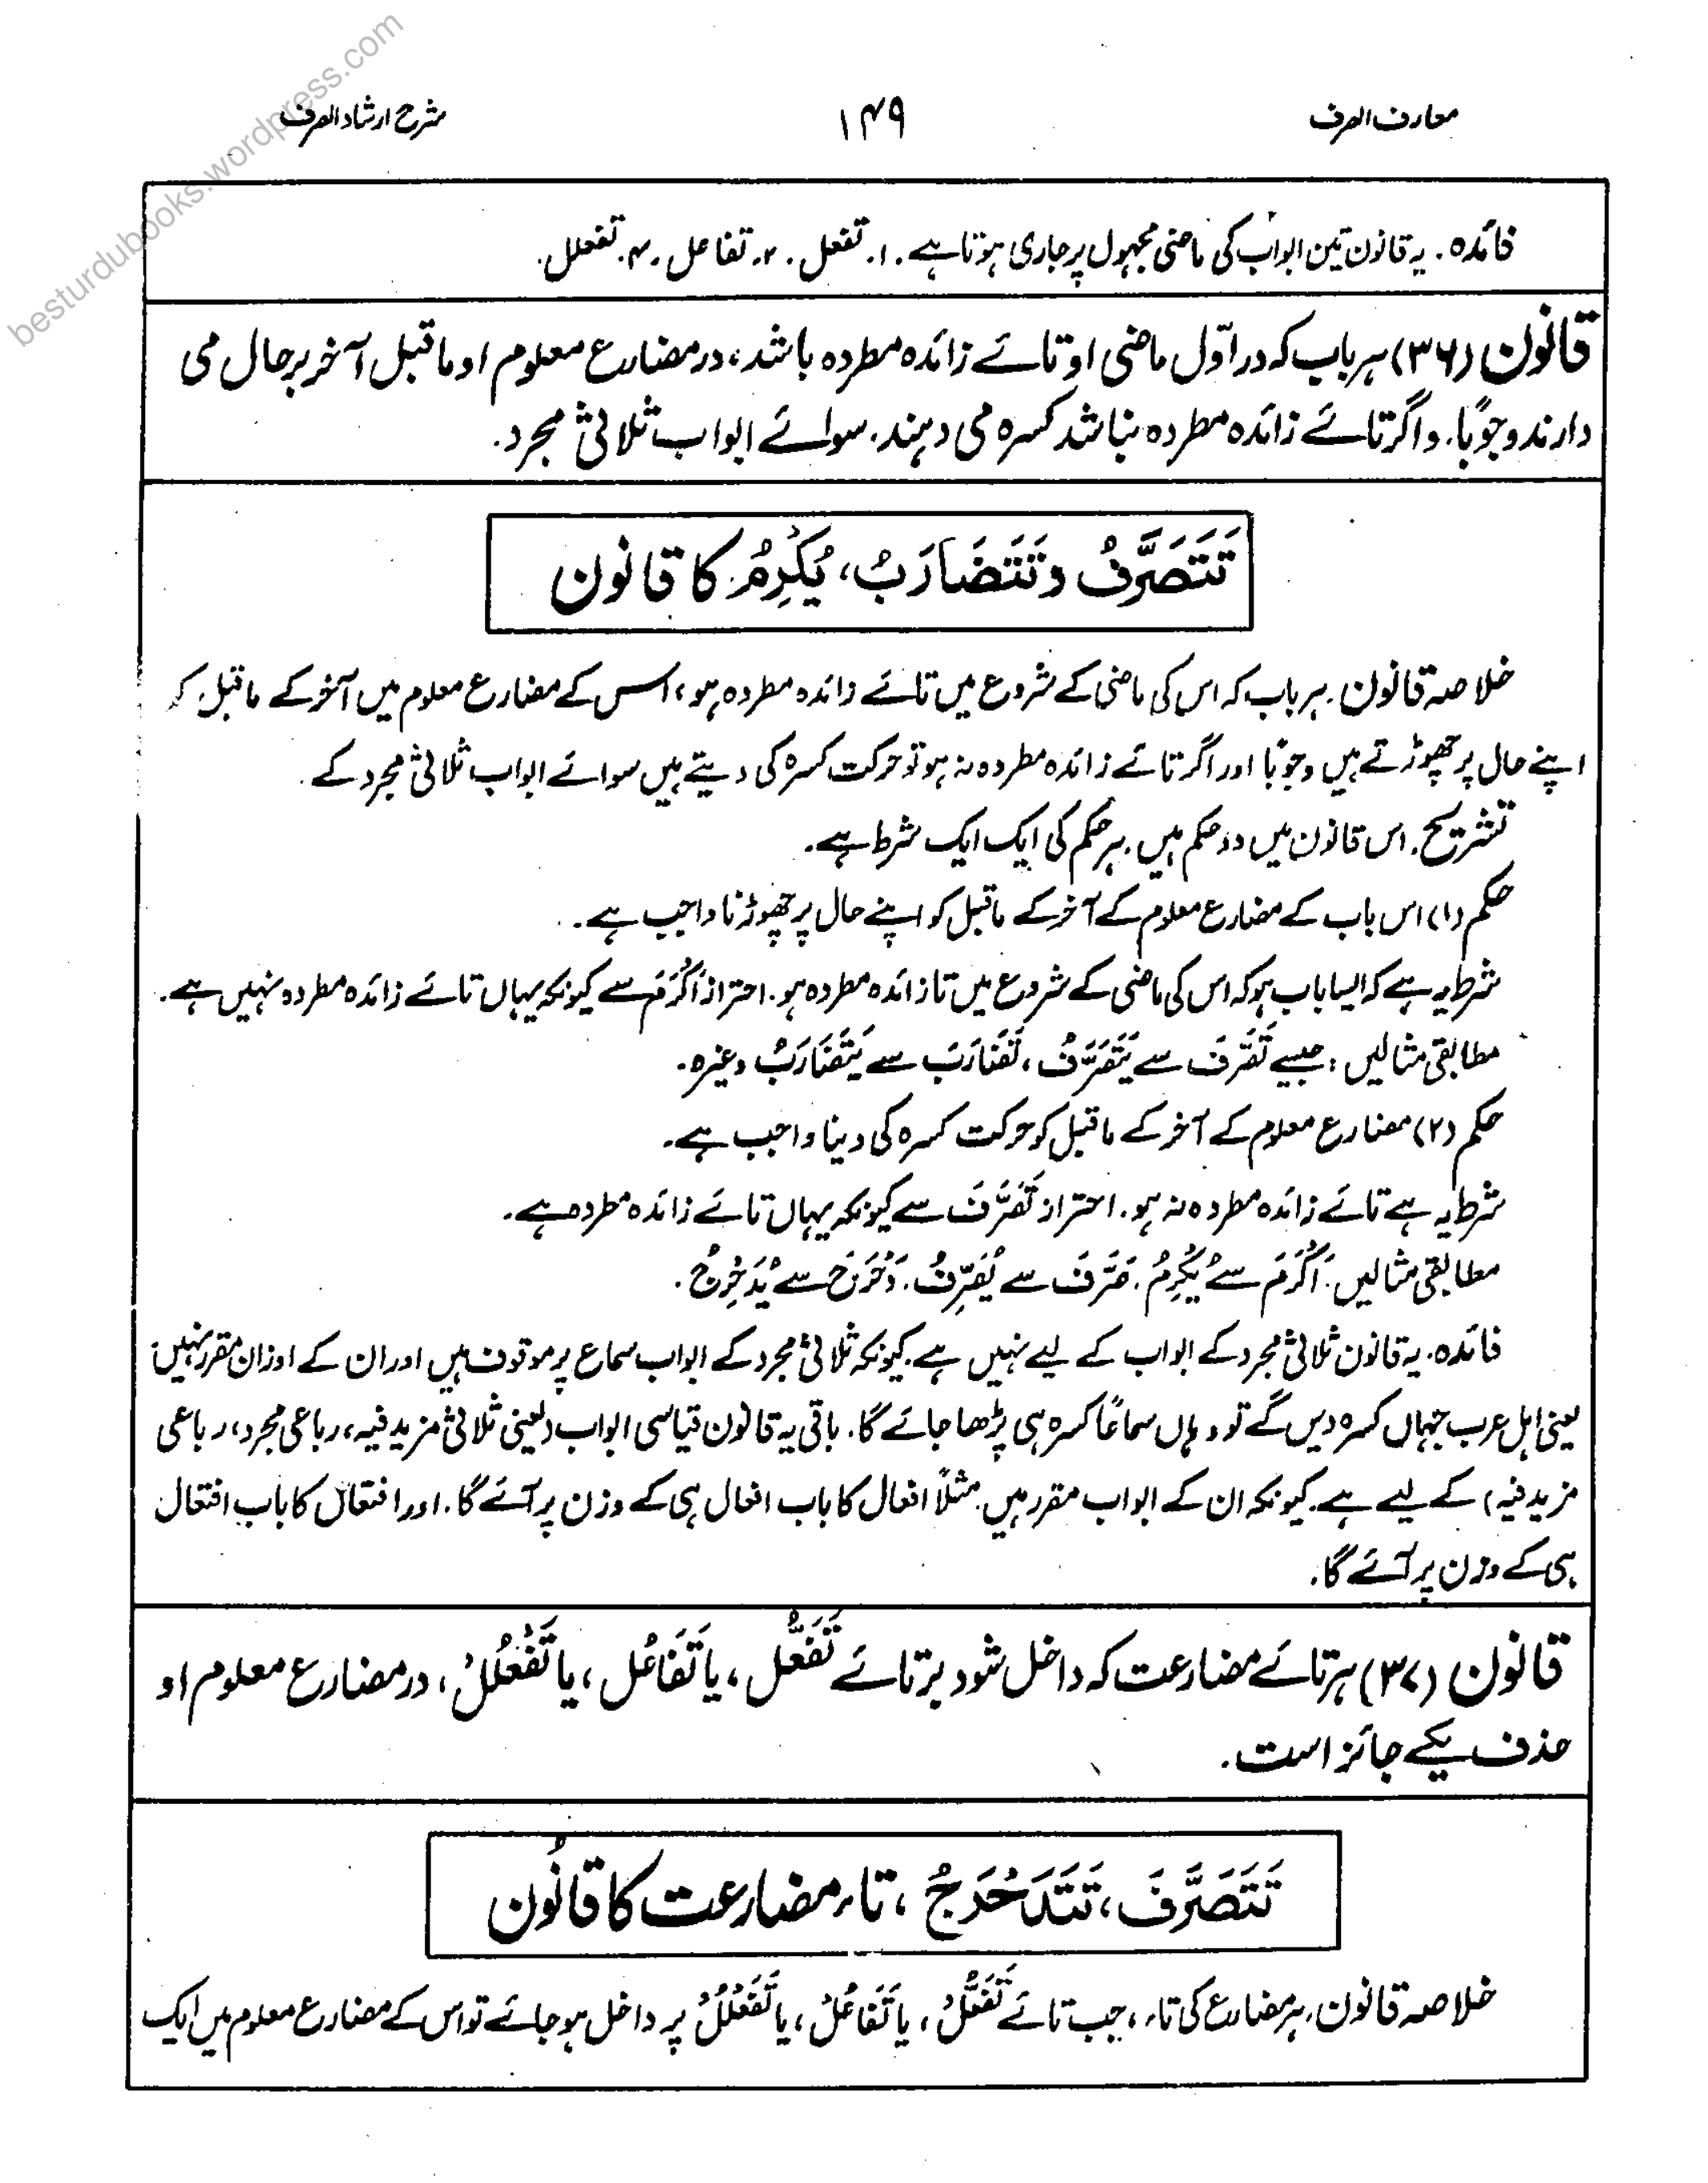 besturdubooks.wordpress.com
معارف الصرف
۱۴۹
شرح ارشاد الصرف
فائدہ۔ یہ قانون تین ابواب کی ماضی مجہول پر جاری ہوتا ہے۔ ۱۔ تفعل۔ ۲۔ تفاعل۔ ۳۔ تفعلل۔
قانون (۳۶) ہر باب کہ در اوّل ماضی او تائے زائدہ مطردہ باشد، در مضارع معلوم او ما قبل آخر بر حال می
دارند وجوبًا۔ و اگر تائے زائدہ مطردہ نباشد کسرہ می دہند۔ سوائے ابواب ثلاثی مجرد۔
تَتَصَرَّفُ و تَتَضَارَبُ، یُکْرِمُ کا قانون
خلاصہ قانون۔ ہر باب کہ اس کی ماضی کے شروع میں تائے زائدہ مطردہ ہو، اس کے مضارع معلوم میں آخر کے ما قبل کو
اپنے حال پر چھوڑتے ہیں وجوبًا اور اگر تائے زائدہ مطردہ نہ ہو تو حرکت کسرہ کی دیتے ہیں سوائے ابواب ثلاثی مجرد کے۔
تشریح۔ اس قانون میں دو حکم ہیں۔ ہر حکم کی ایک ایک شرط ہے۔
حکم (۱) اس باب کے مضارع معلوم کے آخر کے ما قبل کو اپنے حال پر چھوڑنا واجب ہے۔
شرط یہ ہے کہ ایسا باب ہو کہ اس کی ماضی کے شروع میں تا زائدہ مطردہ ہو۔ احتراز اَکْرَمَ سے کیونکہ یہاں تائے زائدہ مطردہ نہیں ہے۔
مطابقی مثالیں : جیسے تَصَرَّفَ سے یَتَصَرَّفُ، تَضَارَبَ سے یَتَضَارَبُ وغیرہ۔
حکم (۲) مضارع معلوم کے آخر کے ما قبل کو حرکت کسرہ کی دینا واجب ہے۔
شرط یہ ہے تائے زائدہ مطردہ نہ ہو۔ احتراز تَصَرَّفَ سے کیونکہ یہاں تائے زائدہ مطردہ ہے۔
مطابقی مثالیں۔ اَکْرَمَ سے یُکْرِمُ۔ صَرَّفَ سے یُصَرِّفُ۔ دَحْرَجَ سے یُدَحْرِجُ۔
فائدہ۔ یہ قانون ثلاثی مجرد کے ابواب کے لیے نہیں ہے۔ کیونکہ ثلاثی مجرد کے ابواب سماع پر موقوف ہیں اور ان کے اوزان مقرر نہیں
یعنی اہل عرب جہاں کسرہ دیں گے تو وہاں سماعًا کسرہ ہی پڑھا جائے گا۔ باقی یہ قانون قیاسی ابواب (یعنی ثلاثی مزید فیہ، رباعی مجرد، رباعی
مزید فیہ) کے لیے ہے۔ کیونکہ ان کے ابواب مقرر ہیں۔ مثلًا افعال کا باب افعال ہی کے وزن پر آئے گا۔ اور افتعال کا باب افتعال
ہی کے وزن پر آئے گا۔
قانون (۳۷) ہر تائے مضارعت کہ داخل شود بر تائے تَفَعُّل، یا تَفَاعُل، یا تَفَعْلُلُ، در مضارع معلوم او
حذف یکے جائز است۔
تَتَصَرَّفَ، تَتَدَحْرَجُ، تاء مضارعت کا قانُون
خلاصہ قانون۔ ہر مضارع کی تاء، جب تائے تَفَعُّلُ، یا تَفَاعُلُ، یا تَفَعْلُلُ پر داخل ہو جائے تو اس کے مضارع معلوم میں ایک